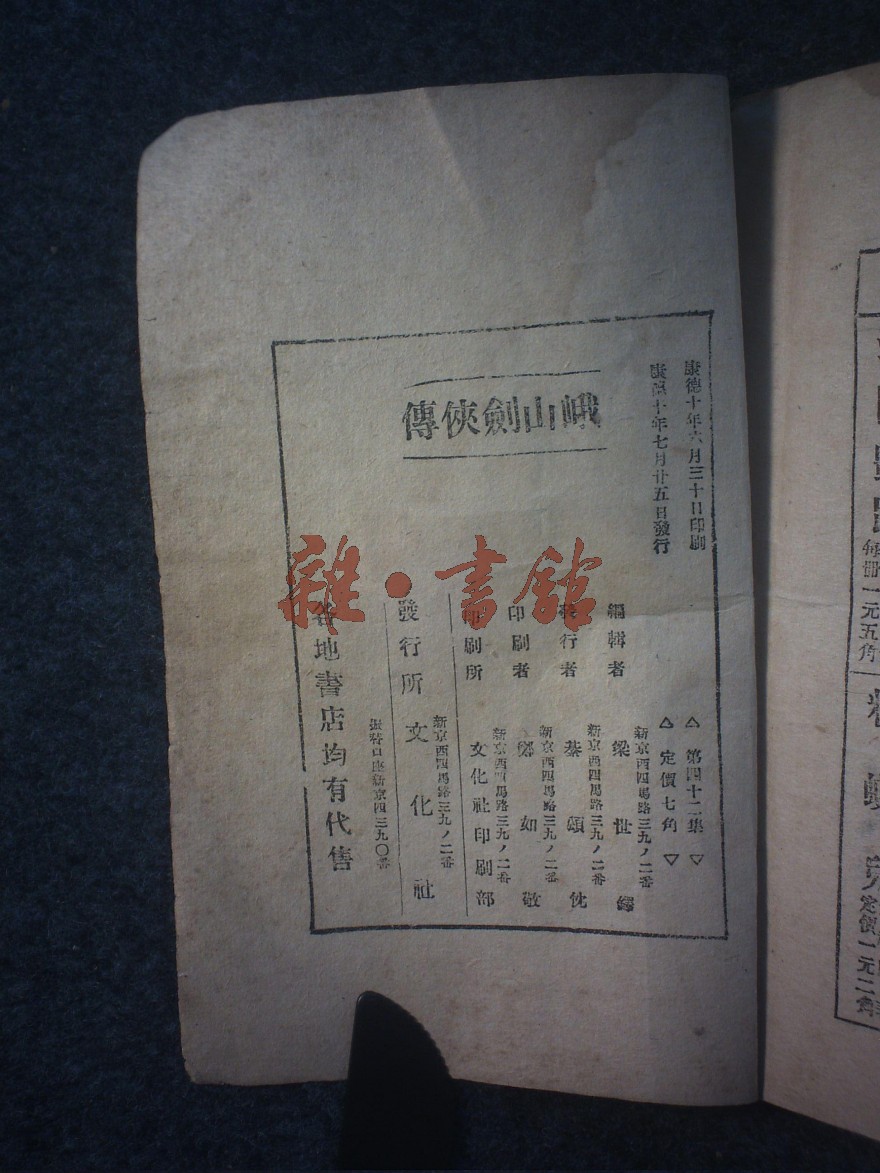 康德十年六月三十日印刷
康德十年七月廿五日發行
峨山劍俠傳
△ 第四十二集 ▽
△ 定價七角 ▽
新京西四馬路三九ノ二番
編輯者 梁世鐸
新京西四馬路三九ノ二番
發行者 蔡頌忱
新京西四馬路三九ノ二番
印刷者 鄧如敬
新京西四馬路三九ノ二番
印刷所 文化社印刷部
新京西四馬路三九ノ二番
發行所 文化社
振替口座新京四三九〇番
各地書店均有代售
雜·書館
每冊一元五角
定價一元二角